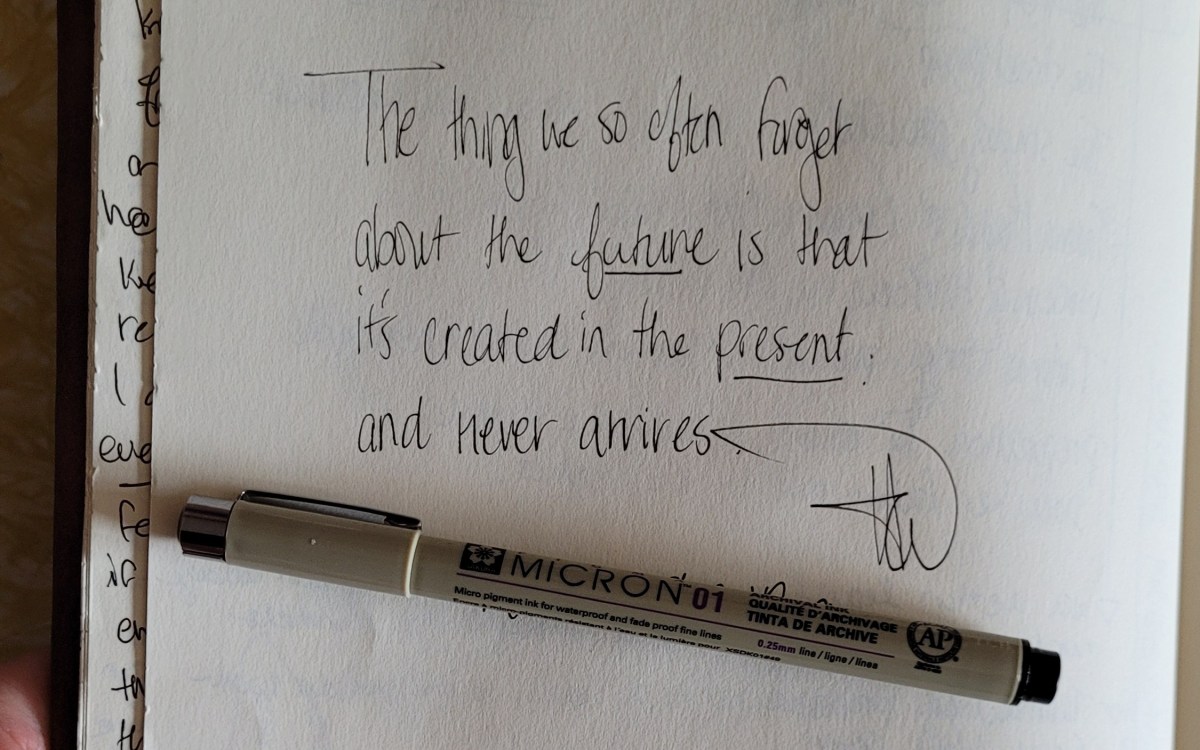 The thing we so often forget
about the future is that
it's created in the present.
and never arrives.
MICRON 01
Micro pigment ink for waterproof and fade proof fine lines
ARCHIVAL INK
QUALITÉ D'ARCHIVAGE
TINTA DE ARCHIVE
0.25mm line / ligne / lines
AP